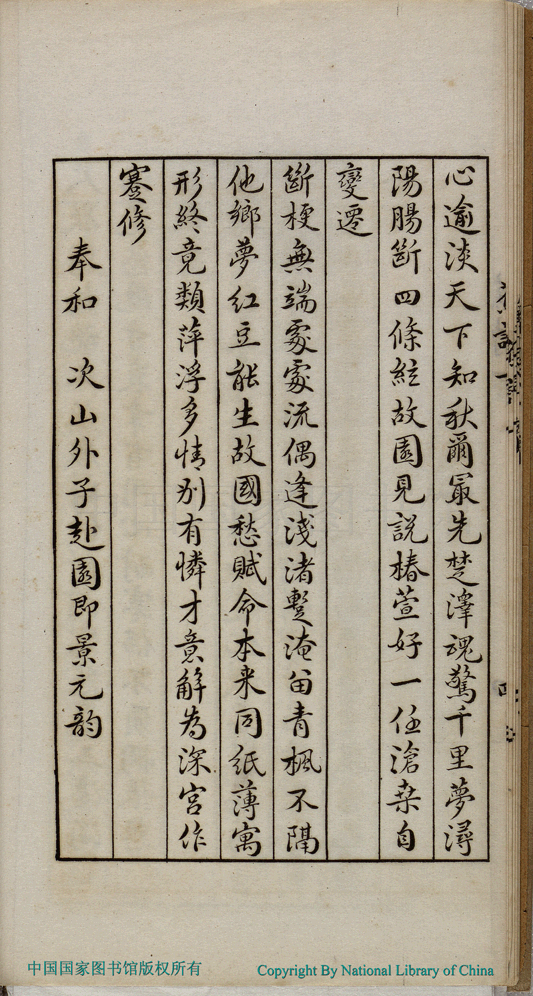 心逾淡天下知秋爾最先楚澤魂驚千里夢潯
陽腸斷四條絃故園見說椿萱好一任滄桑自
變遷
斷梗無端處處流偶逢淺渚暫淹留青楓不隔
他鄉夢紅豆能生故國愁賦命本來同紙薄寓
形終竟類萍浮多情別有憐才意解為深宮作
蹇修
奉和　次山外子赴園即景元韵
中国国家图书馆版权所有
Copyright By National Library of China